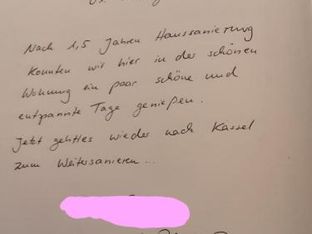 Nach 1,5 Jahren Haussanierung
konnten wir hier in der schönen
Wohnung ein paar schöne und
entspannte Tage genießen.
Jetzt geht es wieder nach Kassel
zum Weitersanieren...